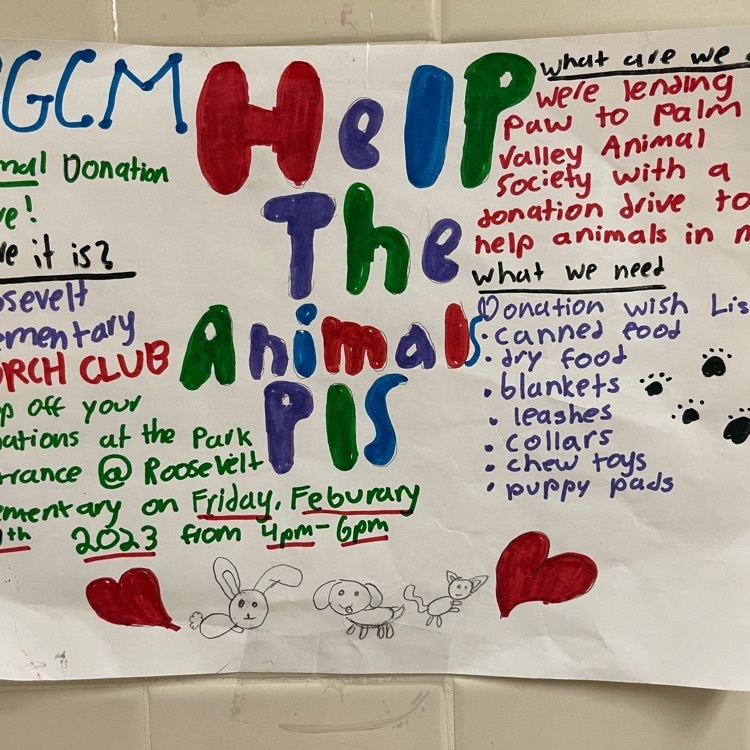 GCM
Donation
it is?
CLUB
off your
at the Park
@ Roosevelt
on Friday, Feburary
2023 from 4pm-6pm
Help
The
Animals
Pls
what are we
we're lending
paw to palm
valley Animal
Society with a
donation drive to
help animals in
what we need
Donation wish
• canned food
• dry food
• blankets
• leashes
• collars
• chew toys
• puppy pads